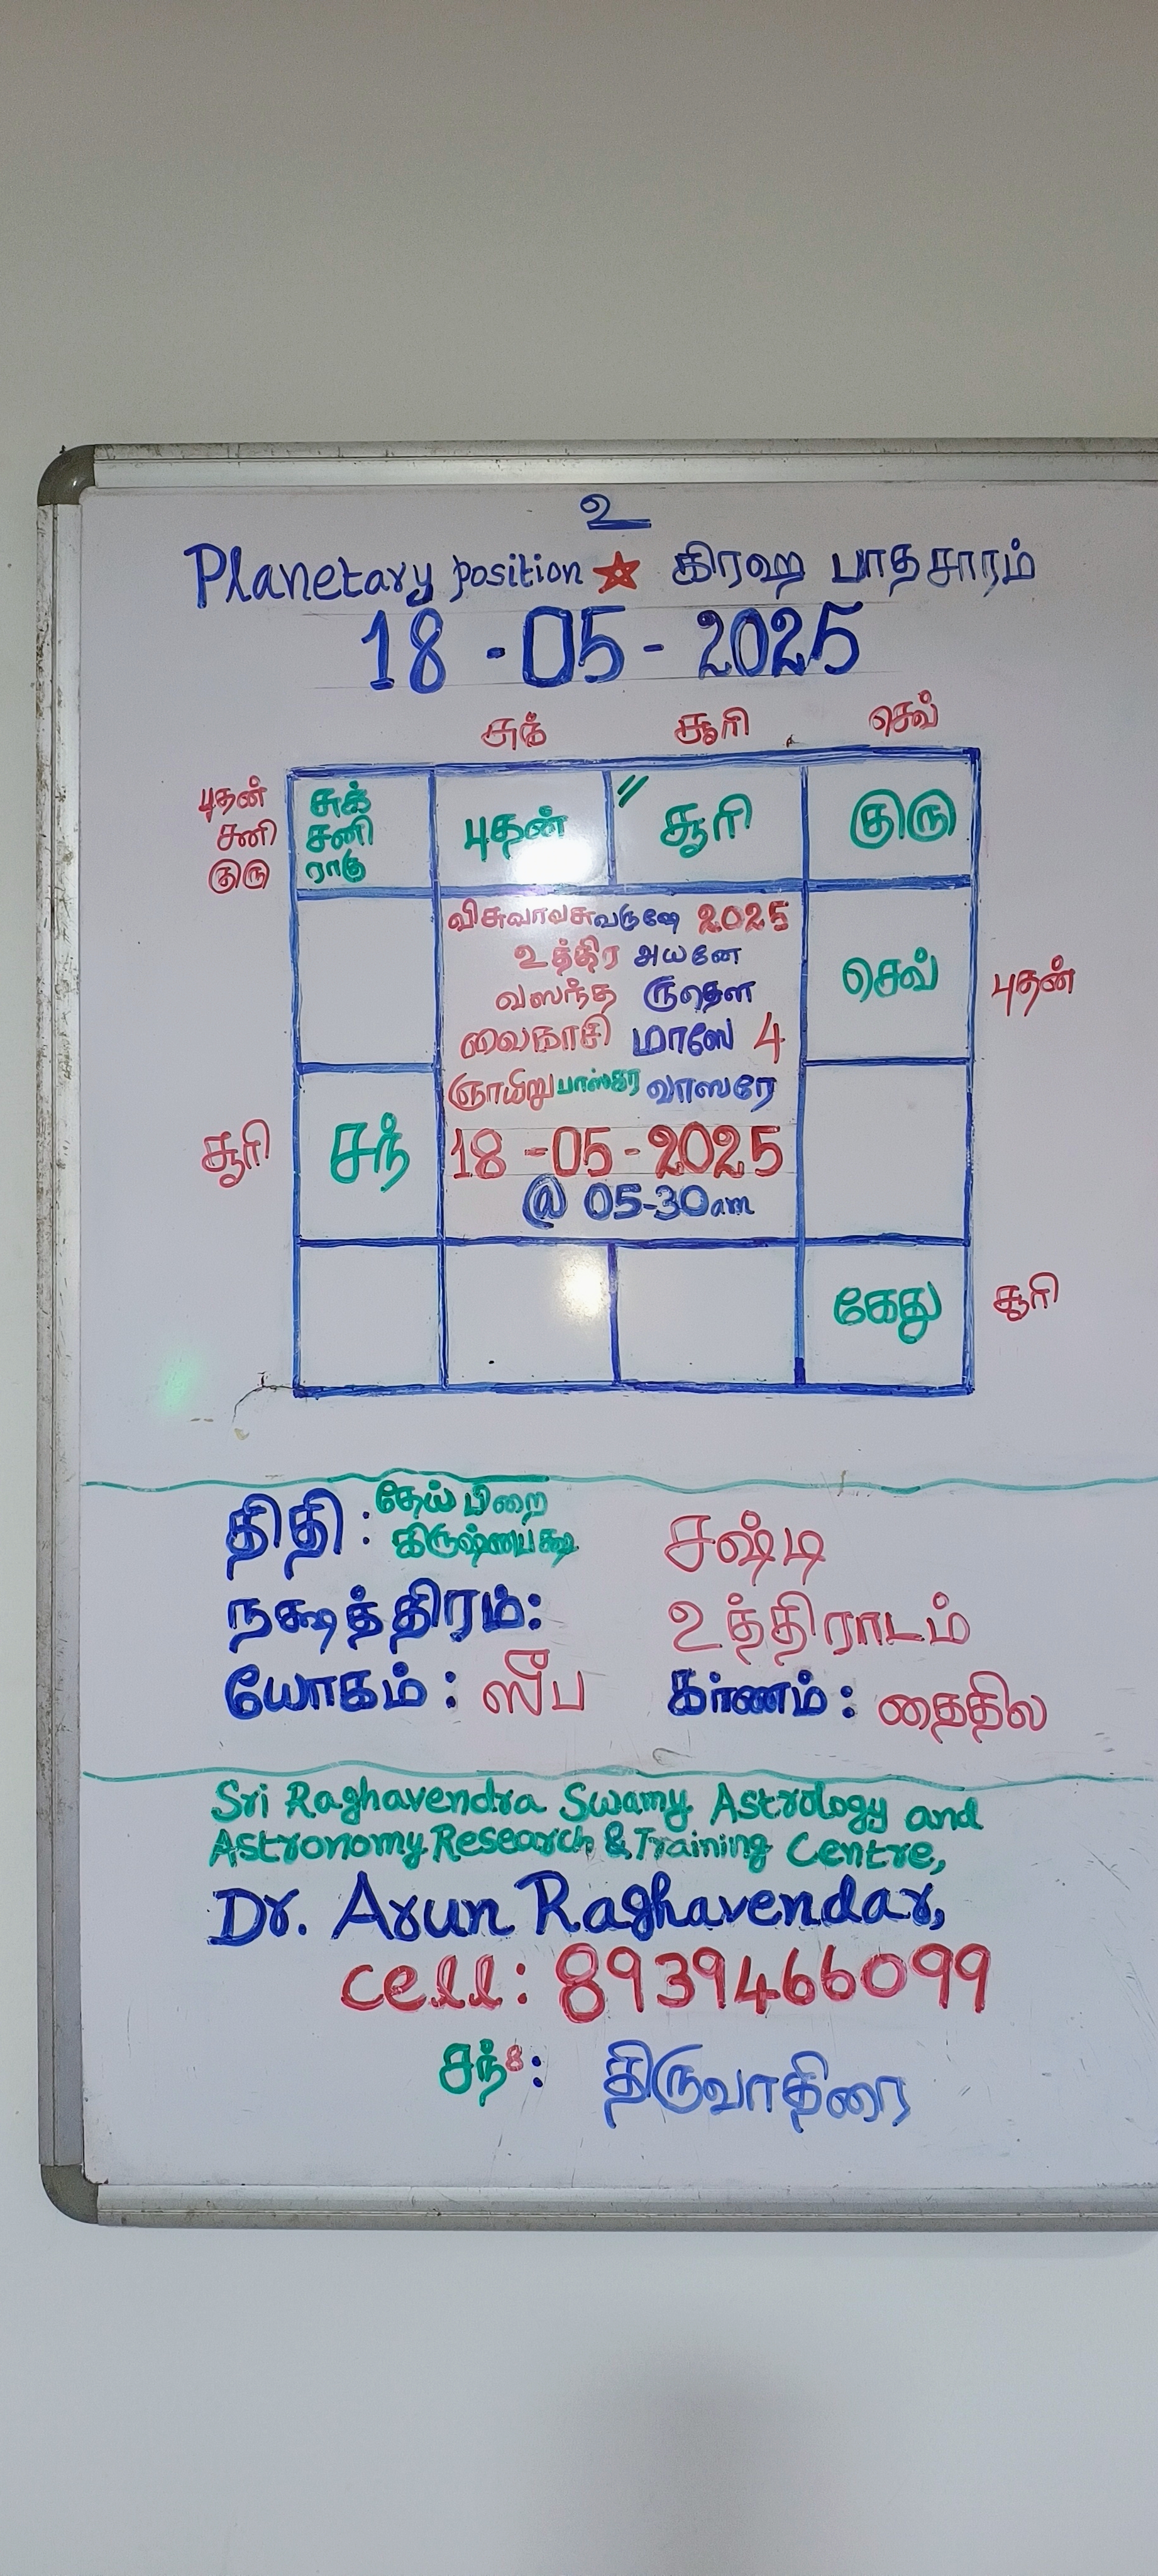 உ
Planetary position ★ கிரஹ பாதசாரம்
18 - 05 - 2025
சுக் சூரி செவ்
புதன் சுக்
சனி சனி புதன் " சூரி குரு
குரு ராகு
விசுவாவசுவருஷே 2025
உத்திர அயனே
வஸந்த ருதௌ செவ் புதன்
வைகாசி மாஸே 4
ஞாயிறு பாஸ்கர வாஸரே
சூரி சந் 18 - 05 - 2025
@ 05-30am
கேது சூரி
திதி : தேய் பிறை
கிருஷ்ணபக்ஷ சஷ்டி
நக்ஷத்திரம்: உத்திராடம்
யோகம் : ஸீப கர்ணம் : தைதில
Sri Raghavendra Swamy Astrology and
Astronomy Research & Training Centre,
Dr. Arun Raghavendar,
cell: 8939466099
சந்8: திருவாதிரை